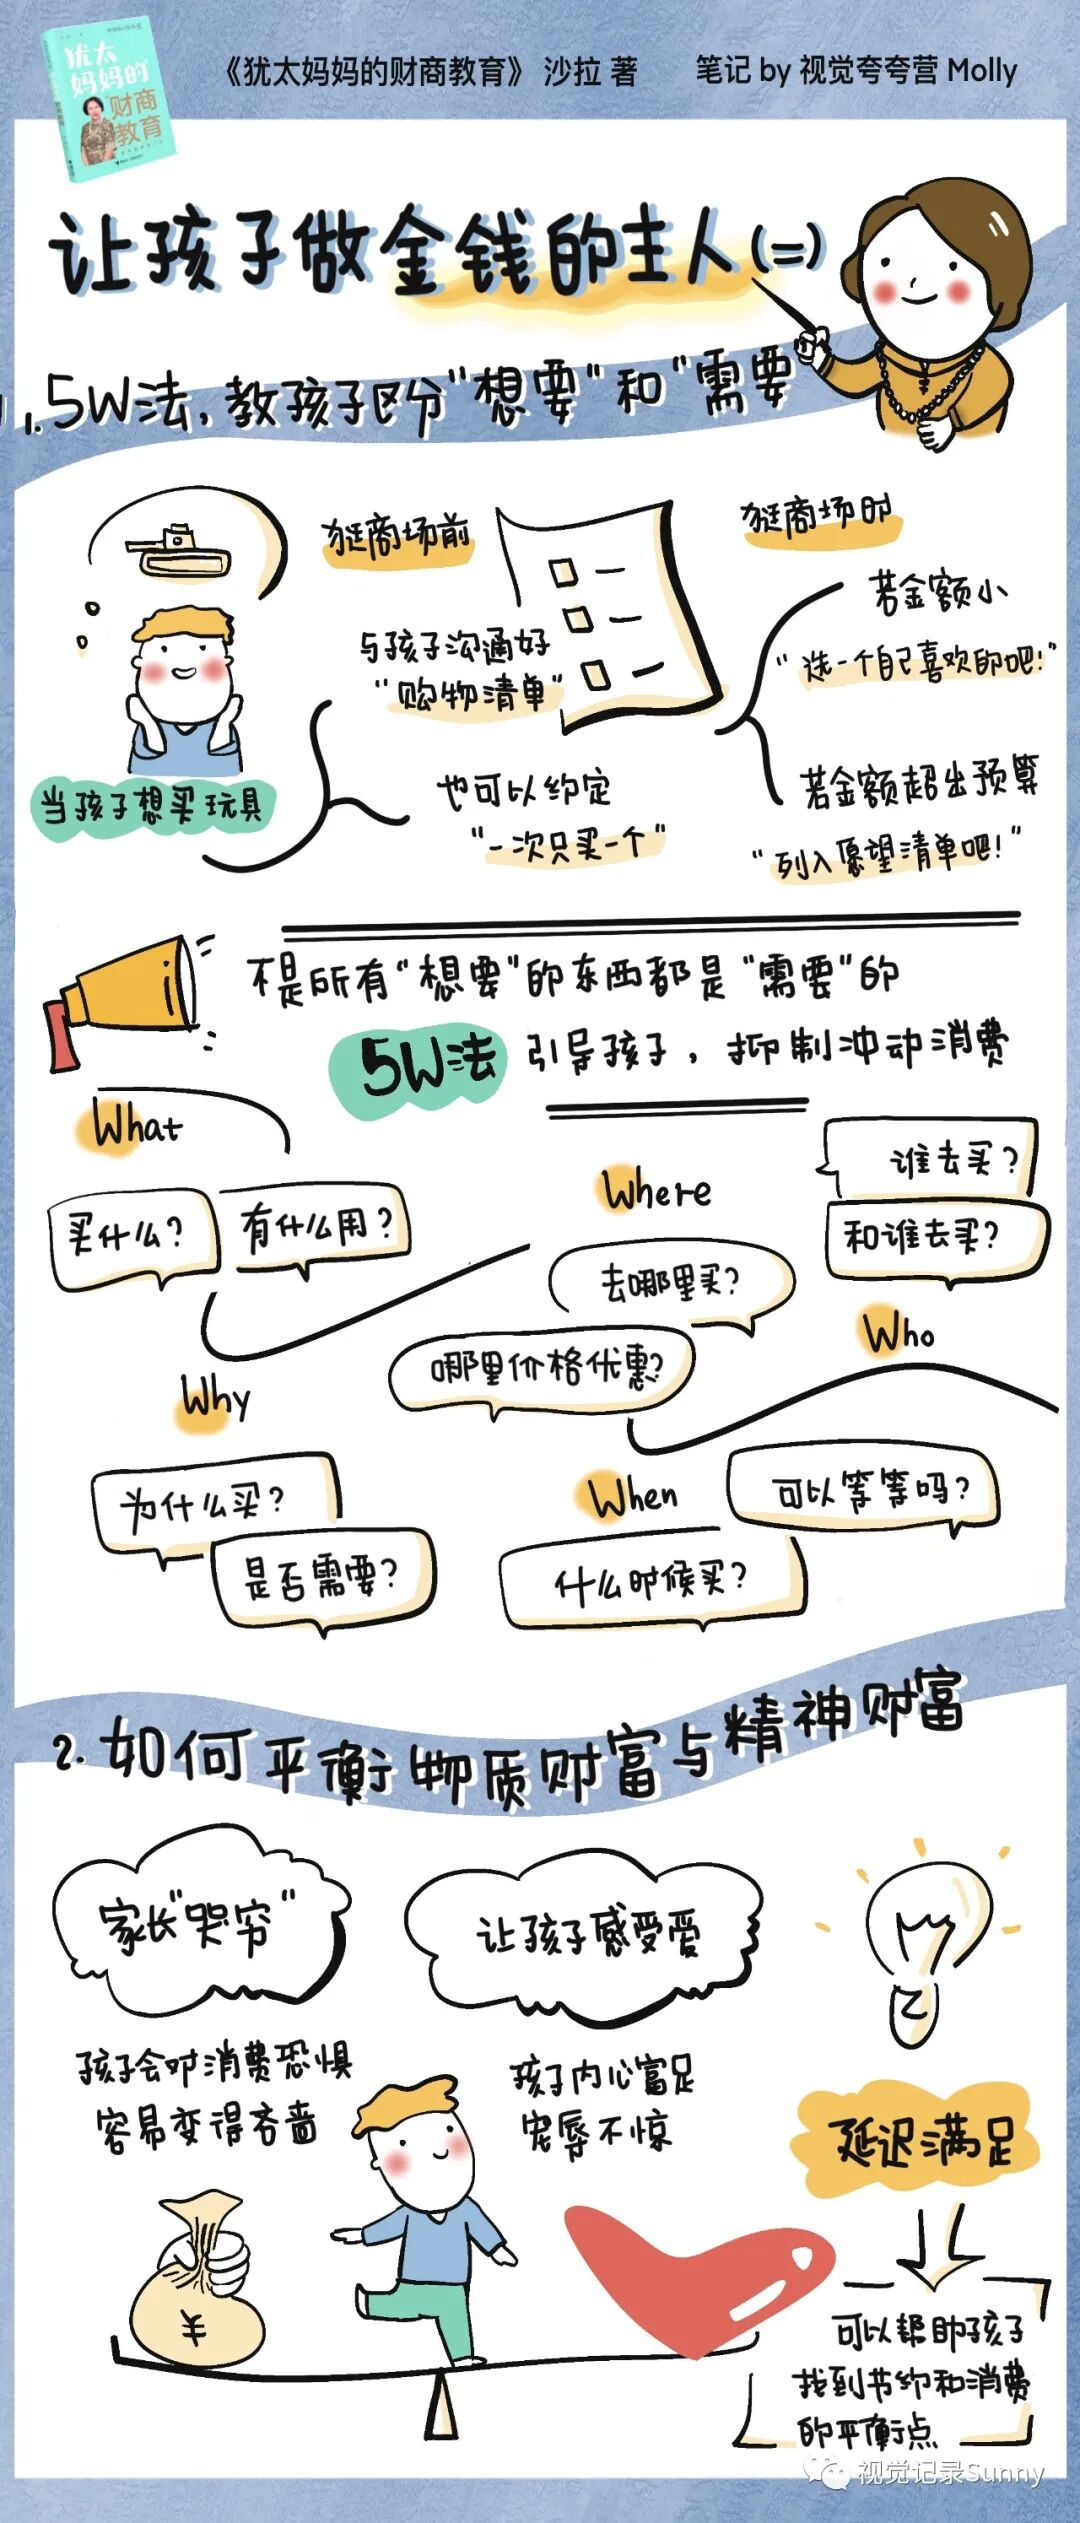 犹太
妈妈的
财商
教育
《犹太妈妈的财商教育》 沙拉 著
笔记 by 视觉夸夸营 Molly
让孩子做金钱的主人(二)
1.5W法,教孩子区分"想要"和"需要
逛商场前
与孩子沟通好
"购物清单"
也可以约定
"一次只买一个"
当孩子想买玩具
逛商场时
若金额小
"选一个自己喜欢的吧!"
若金额超出预算
"列入愿望清单吧!"
不是所有"想要"的东西都是"需要"的
5W法 引导孩子,抑制冲动消费
What
买什么?
有什么用?
Where
去哪里买?
哪里价格优惠?
谁去买?
和谁去买?
Who
Why
为什么买?
是否需要?
When
可以等等吗?
什么时候买?
2.如何平衡物质财富与精神财富
家长"哭穷"
孩子会对消费恐惧
容易变得吝啬
让孩子感受爱
孩子内心富足
宠辱不惊
¥
延迟满足
可以帮助孩子
找到节约和消费
的平衡点
视觉记录Sunny